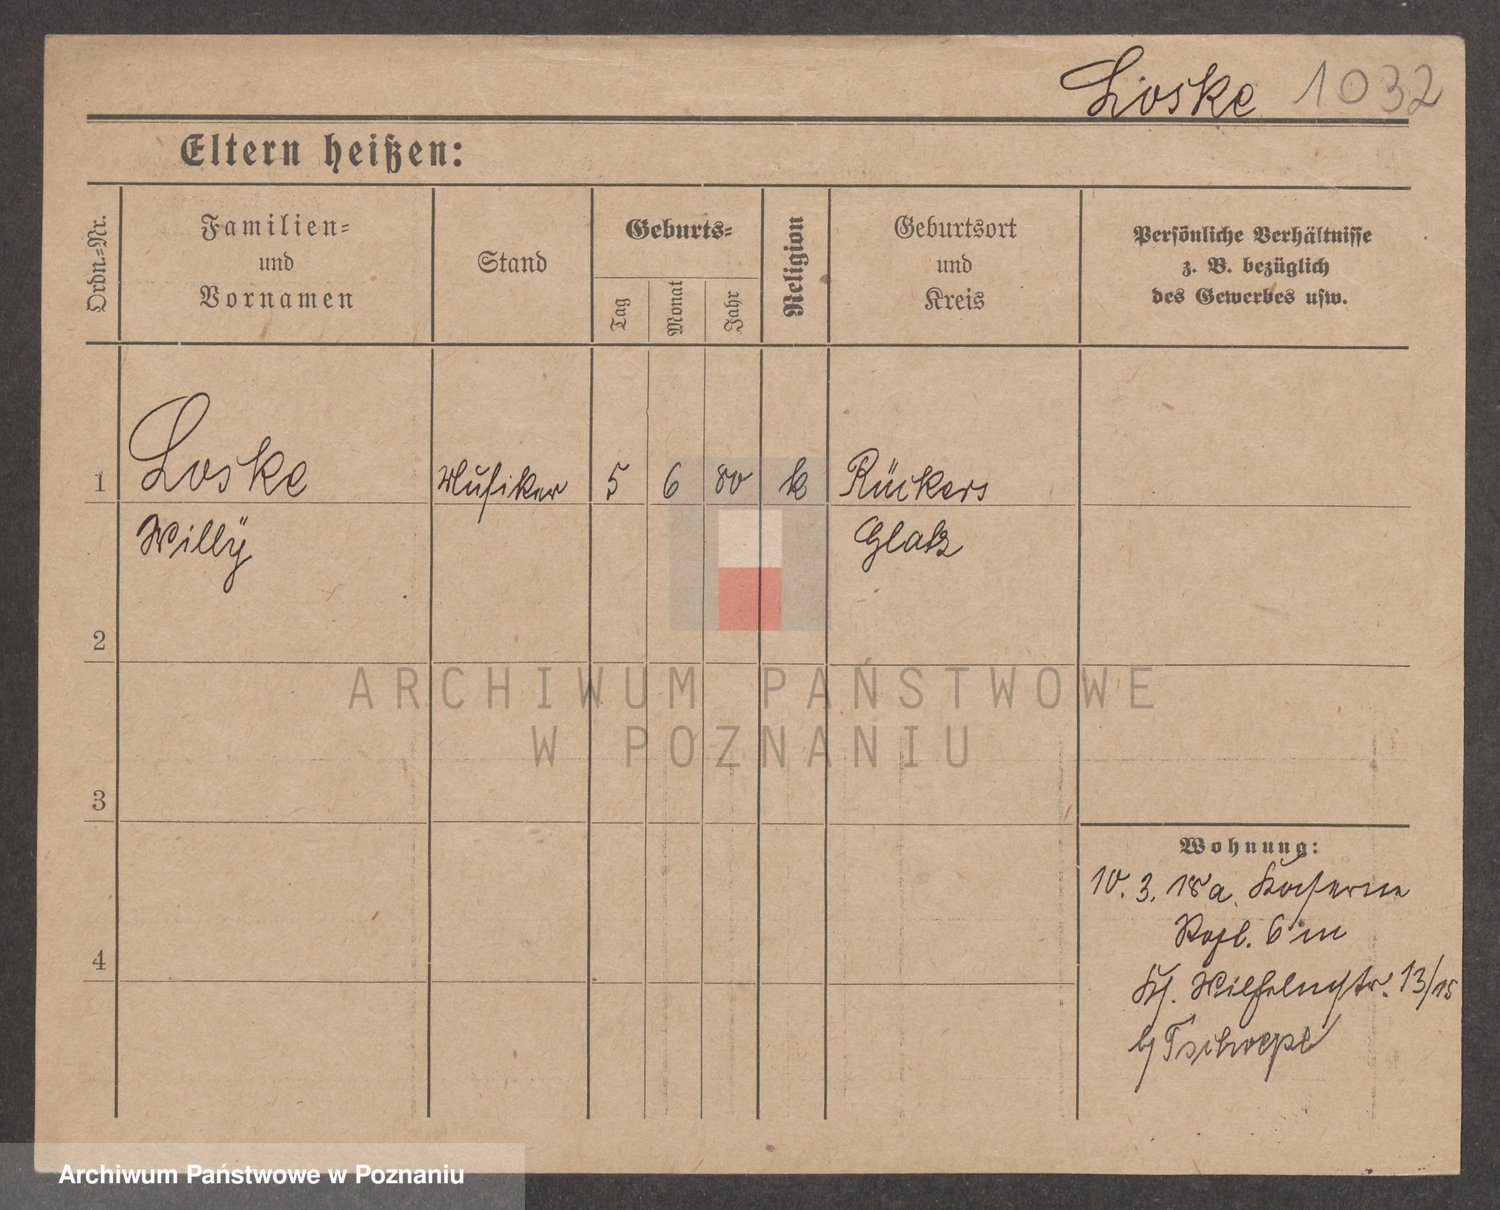 Loske 1032
Eltern heißen:
Ordn.-Nr.
Familien-
und
Vornamen
Stand
Geburts-
Tag
Monat
Jahr
Religion
Geburtsort
und
Kreis
Persönliche Verhältnisse
z. B. bezüglich
des Gewerbes usw.
1 Loske Musiker 5 6 80 k Rückers
Willÿ Glatz
2
3
4
Wohnung:
10. 3. 18 a. Kaserne
6 in
Wilhelmstr. 13/15
b/ Tschoepe
ARCHIWUM PAŃSTWOWE
W POZNANIU
Archiwum Państwowe w Poznaniu